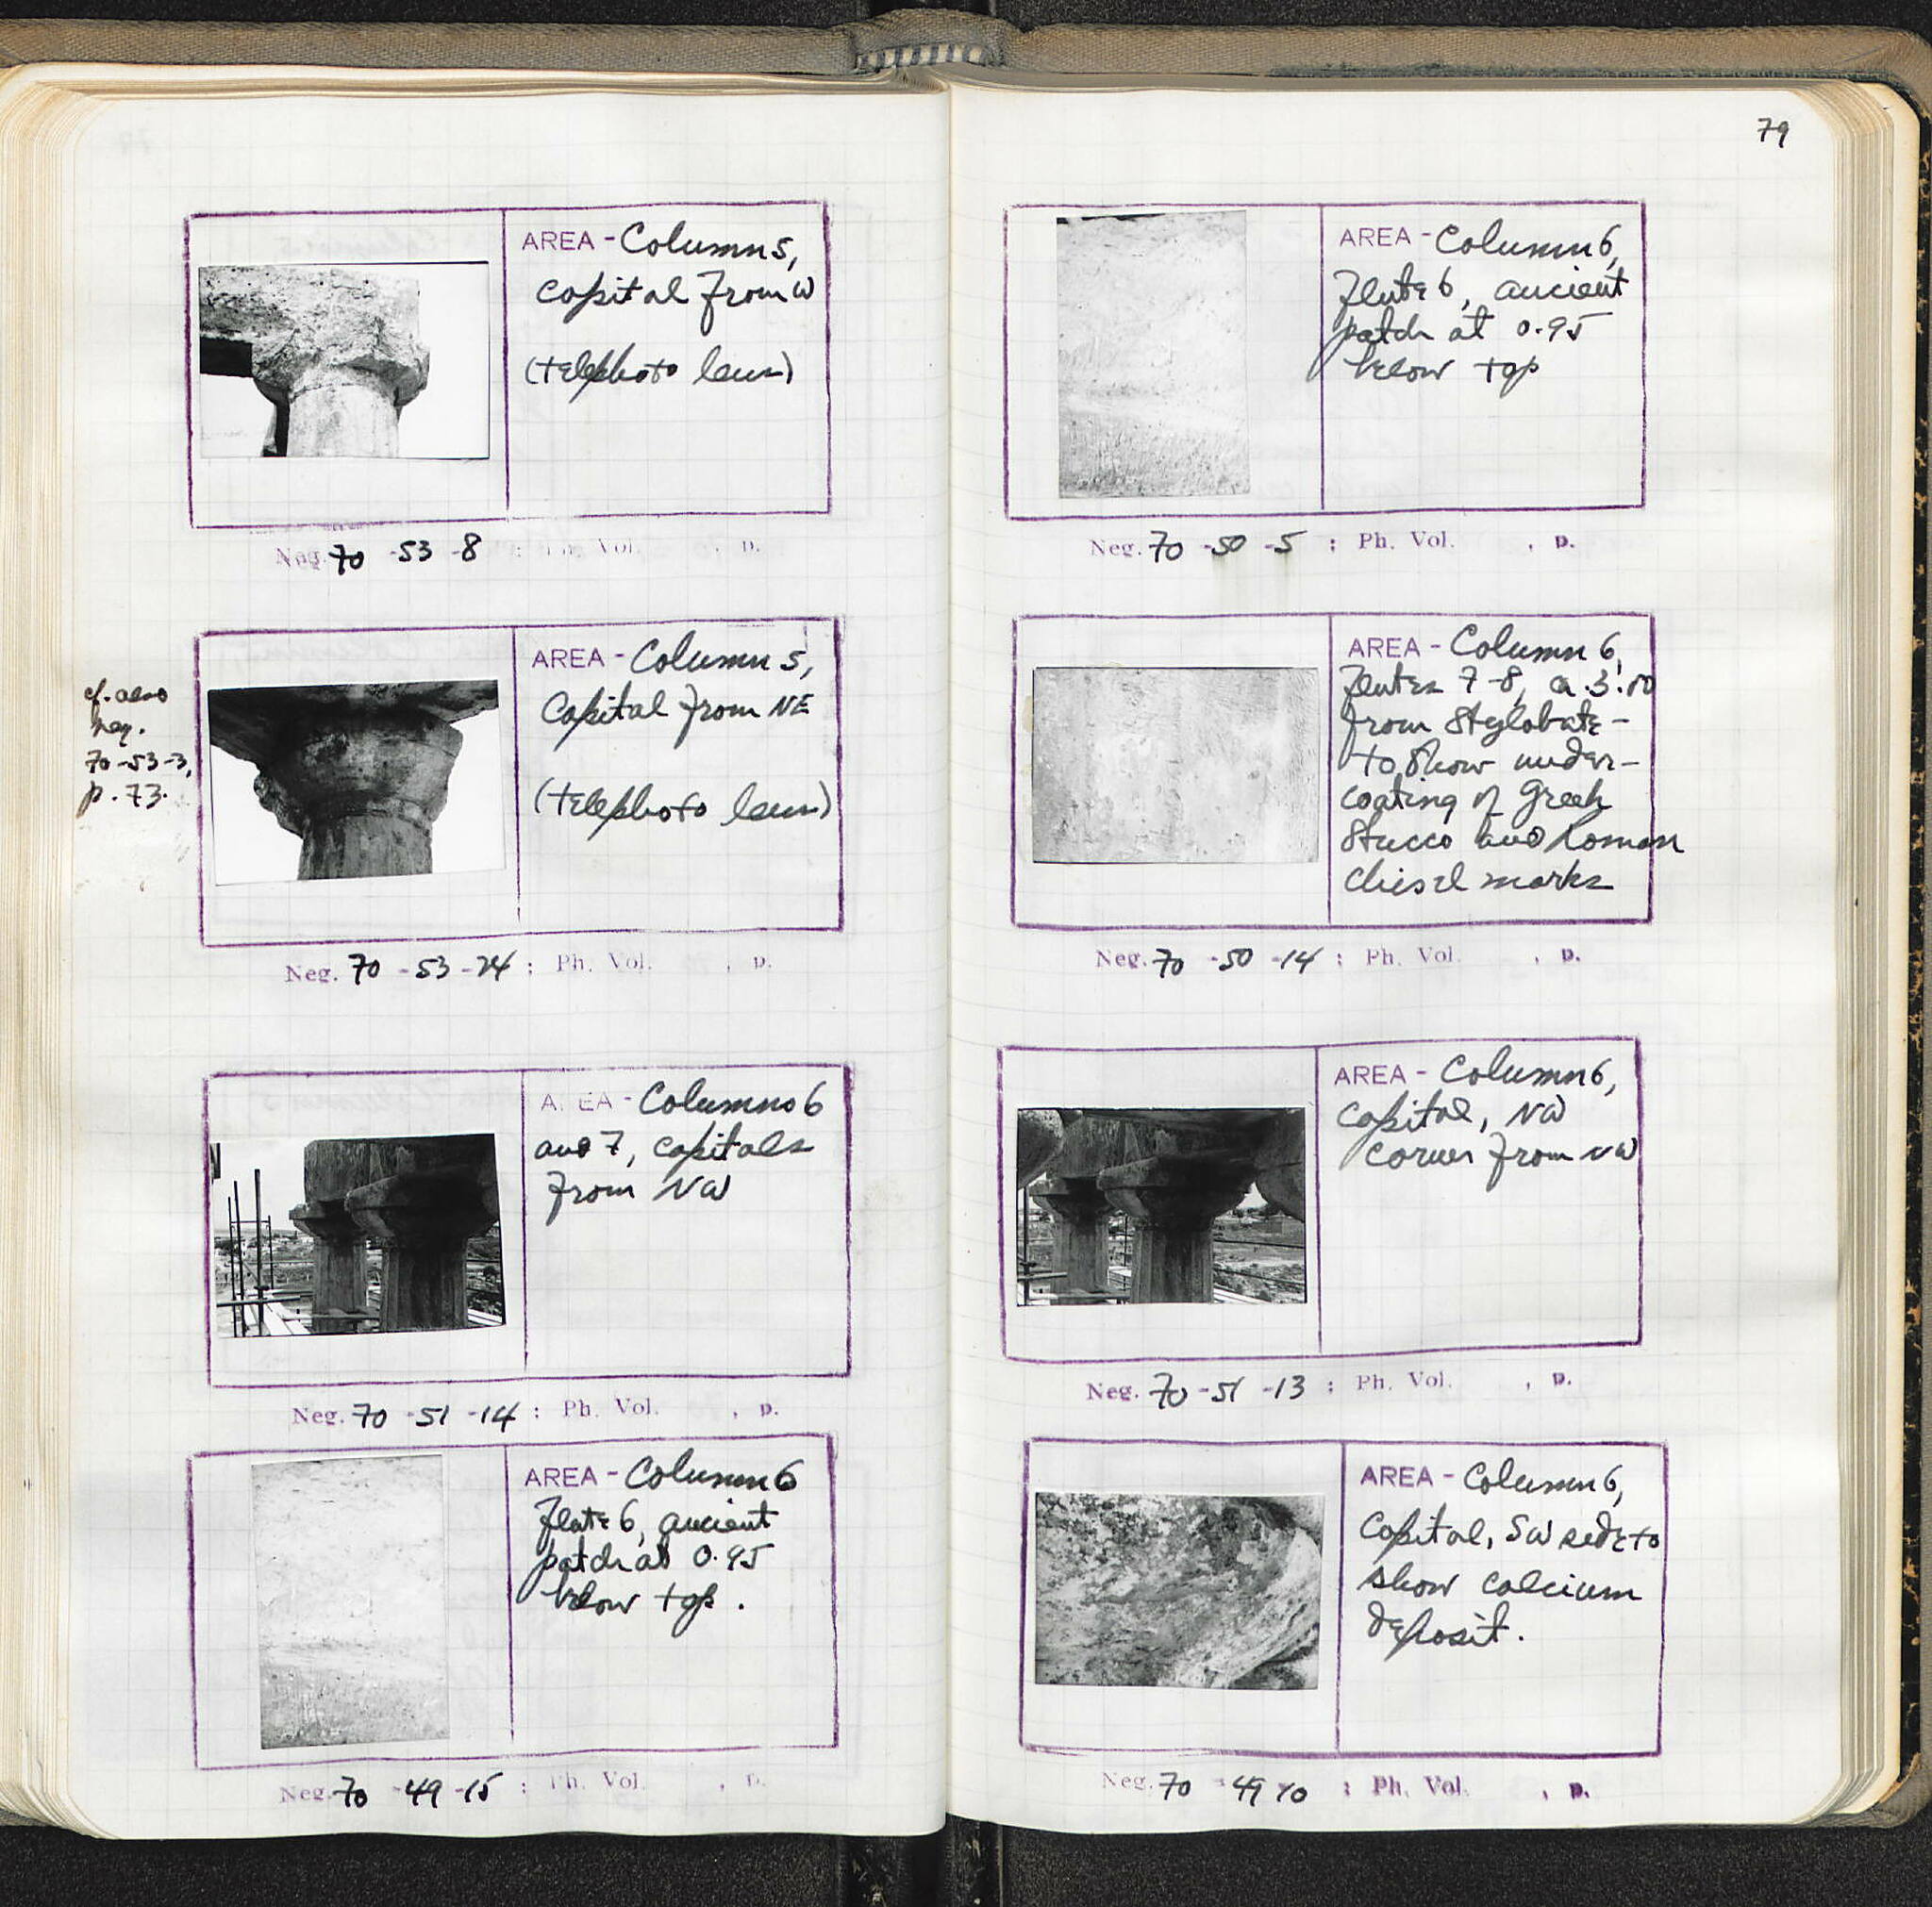 AREA - Column 5,
capital from W
(telephoto lens)
Neg. 70 -53 -8 : Ph. Vol. , p.
cf. also
neg.
70-53-3,
p. 73.
AREA - Column 5,
Capital from NE
(telephoto lens)
Neg. 70 -53 -24 ; Ph. Vol. , p.
AREA - Columns 6
and 7, capitals
from NW
Neg. 70 -51 -14 ; Ph. Vol. , p.
AREA - Column 6
flute 6, ancient
patch at 0.95
below top.
Neg. 70 -49 -15 ; Ph. Vol. , p.
79
AREA - Column 6,
flute 6, ancient
patch at 0.95
below top
Neg. 70 -50 -5 ; Ph. Vol. , p.
AREA - Column 6,
flutes 7-8, ca. 3.00
from Stylobate -
to show under-
coating of Greek
Stucco and Roman
chisel marks
Neg. 70 -50 -14 ; Ph. Vol. , p.
AREA - Column 6,
capital, NW
corner from NW
Neg. 70 -51 -13 ; Ph. Vol. , p.
AREA - Column 6,
Capital, SW side to
show calcium
deposit.
Neg. 70 -49 ; Ph. Vol. , p.